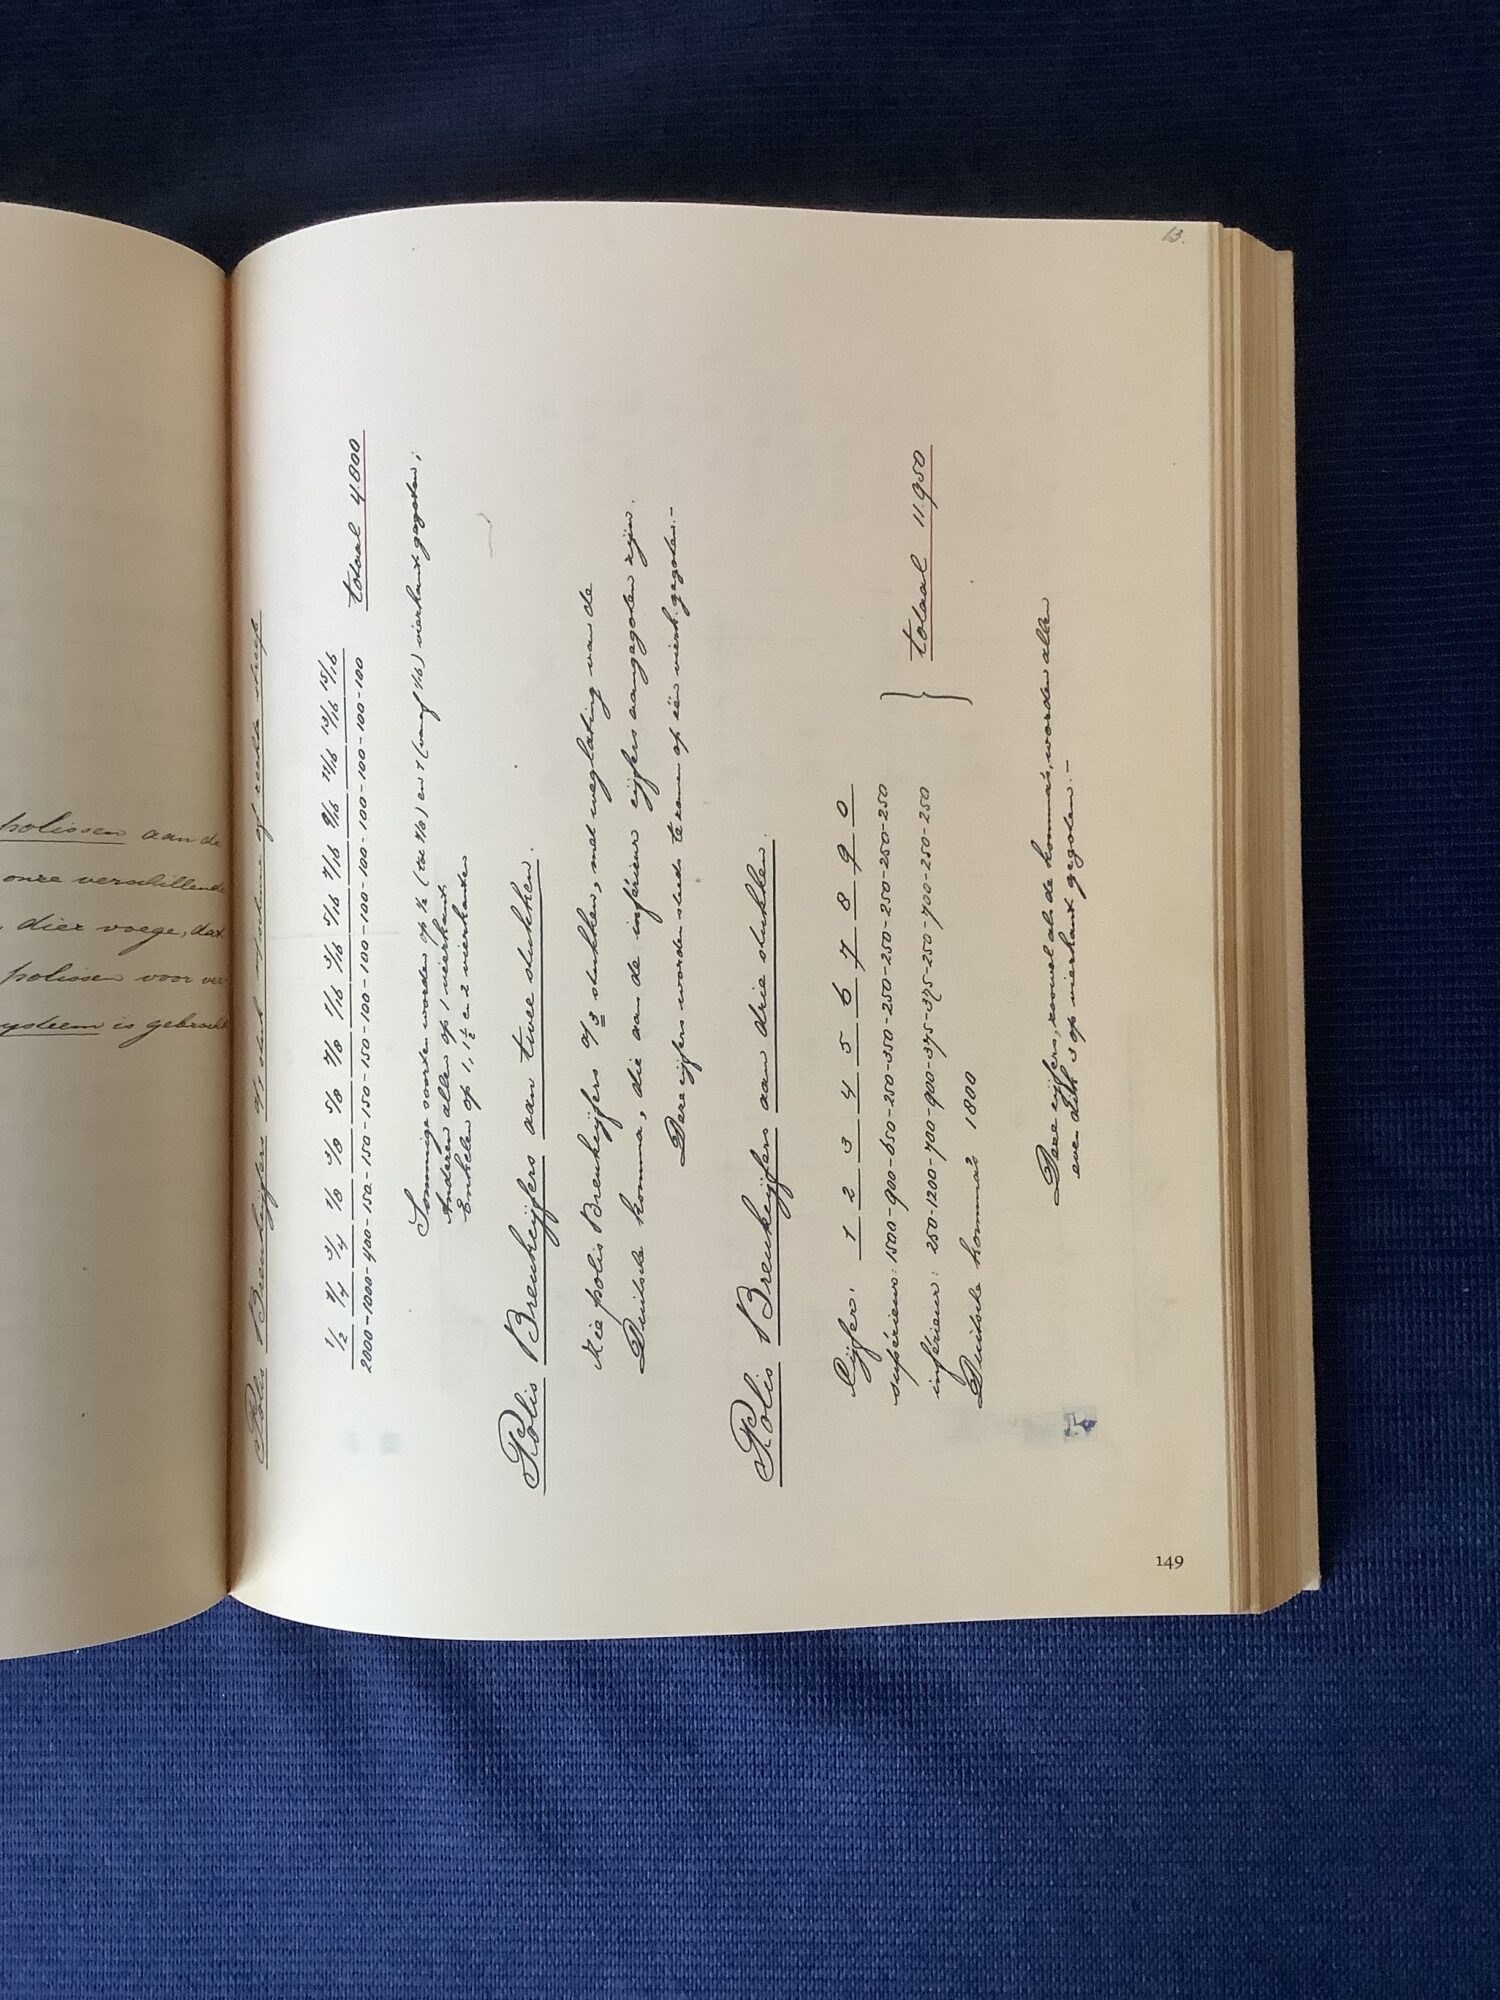 polissen aan de
onze verschillende
dier voege, dat
polissen voor ver-
systeem is gebracht
13.
Polis Breukcijfers op stuk met schuine of rechte streep
1/2 1/4 3/4 1/8 3/8 5/8 7/8 1/16 3/16 5/16 7/16 9/16 11/16 13/16 15/16
2000-1000-400-150-150-150-150-100-100-100-100-100-100-100-100 totaal 4.800
Sommige soorten worden op 1/2 (tot 7/8) en 1 (vanaf 1/16) vierkant gegoten;
Anderen allen op 1 vierkant,
Enkelen op 1, 1½ en 2 vierkanten
Polis Breukcijfers aan twee stukken.
Zie polis Breukcijfers op 3 stukken, met weglating van de
Duitsche komma, die aan de inférieur cijfers aangegoten zijn.
Deze cijfers worden steeds te zamen op één vierk. gegoten.-
Polis Breukcijfers aan drie stukken.
Cijfers: 1 2 3 4 5 6 7 8 9 0
supérieurs: 1500-900-650-250-350-250-250-250-250-250
inférieur: 250-1200-700-900-375-375-250-700-250-250
Duitsche komma's 1800
} totaal 11.950
Deze cijfers, zoowel als de komma's, worden allen
even dik 3 op vierkant gegoten.-
149